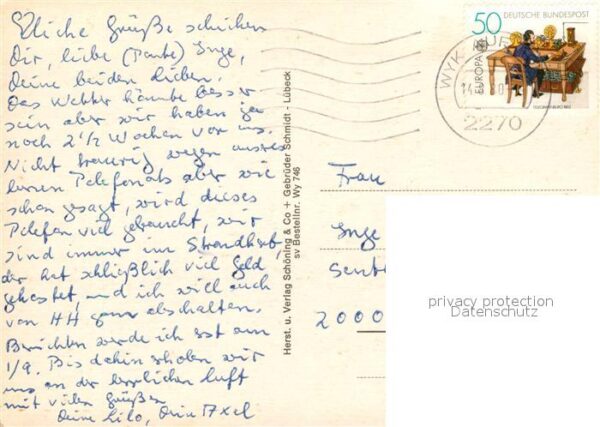 Etliche Grüße schicken
Dir, liebe (Tante) Inge,
Deine beiden Lieben.
Das Wetter könnte besser
sein aber wir haben ja
noch 2 1/2 Wochen vor uns.
Nicht traurig wegen unseres
Telefonats aber wie
schon gesagt, wird dieses
Telefon viel gebraucht, wir
sind immer im Strandkorb,
der hat schließlich viel Geld
gekostet, und ich will auch
von HH ganz abschalten.
Berichten werde ich erst am
1/9. Bis dahin erholen wir
uns an der herrlichen Luft
mit vielen Grüßen
Deine Lilo, Dein Axel
Herst. u. Verlag Schöning & Co + Gebrüder Schmidt - Lübeck
sv Bestellnr. Wy 746
50 DEUTSCHE BUNDESPOST
EUROPA
WYK
14.
2270
Frau
Inge
2000
privacy protection
Datenschutz